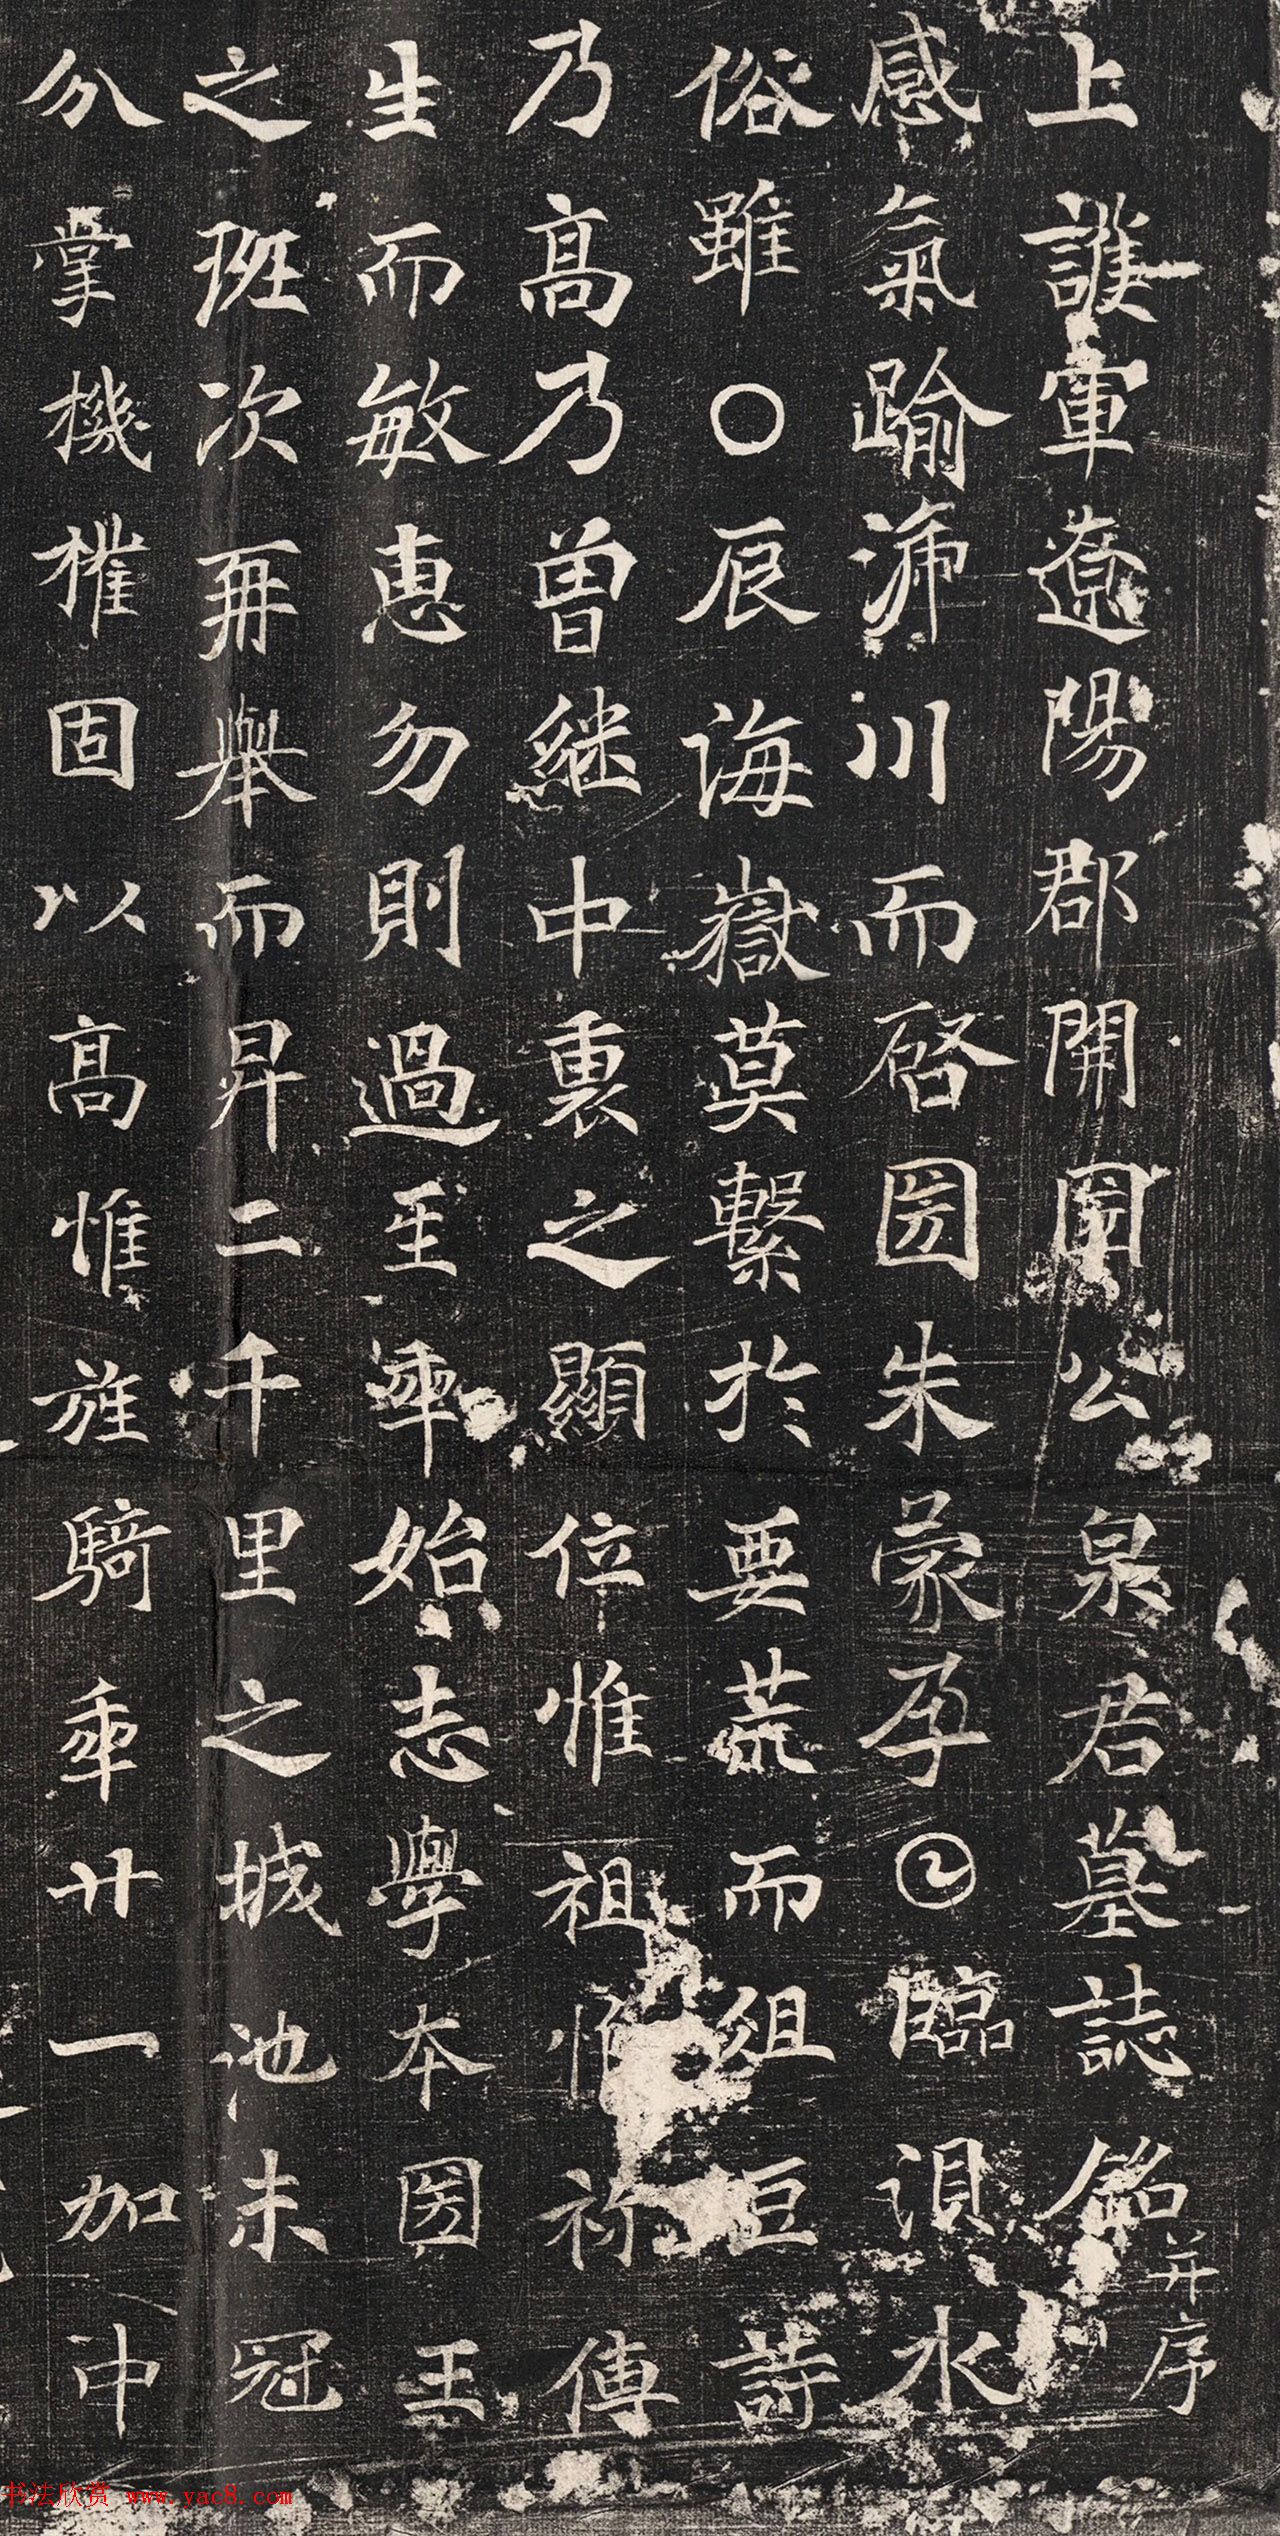 上護軍遼陽郡開圀公泉君墓誌銘并序
感氣踰㴲川而啓圀朱蒙孕𡆠臨浿水
俗雖〇辰海嶽莫繫於要荒而俎豆詩
乃高乃曾継中裏之顯位惟祖惟祢傳
生而敏惠勿則過𤯔𠡦始志學本圀王
之班次再舉而昇二千里之城池未冠
分掌機權固以高惟旌騎𠡦廿一加中
书法欣赏 www.yac8.com